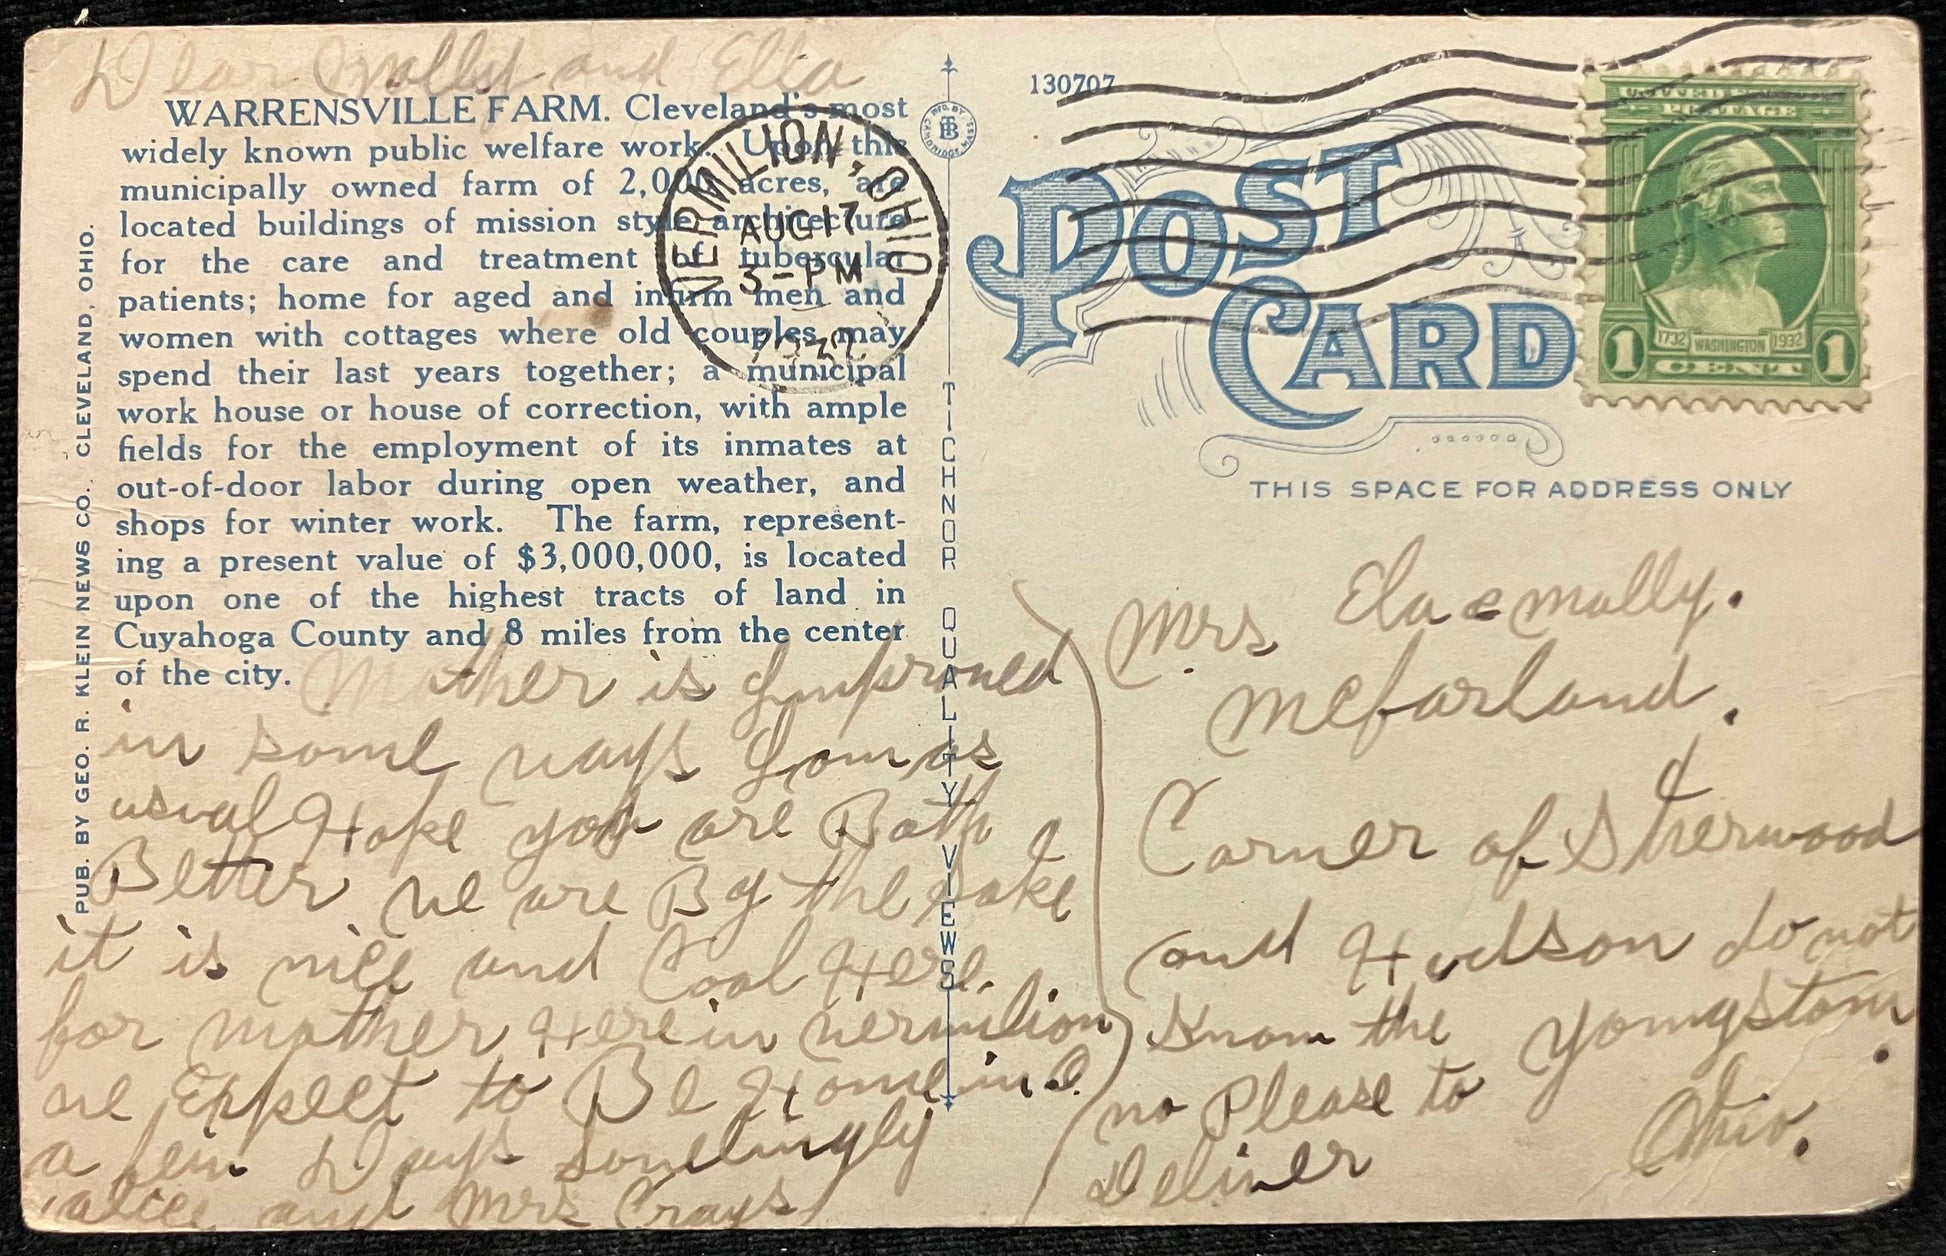 Dear Molly and Ella
WARRENSVILLE FARM. Cleveland's most
widely known public welfare work. Upon this
municipally owned farm of 2,000 acres, are
located buildings of mission style architecture
for the care and treatment of tubercular
patients; home for aged and infirm men and
women with cottages where old couples may
spend their last years together; a municipal
work house or house of correction, with ample
fields for the employment of its inmates at
out-of-door labor during open weather, and
shops for winter work. The farm, represent-
ing a present value of $3,000,000, is located
upon one of the highest tracts of land in
Cuyahoga County and 8 miles from the center
of the city.
Mother is Improved
in some ways
usual Hope you are Both
Better we are By the Lake
it is nice and Cool Here
for Mother Here in Vermilion
we Expect to Be Home in
a few Days
alice and Mrs Crays
PUB. BY GEO. R. KLEIN NEWS CO., CLEVELAND, OHIO.
VERMILION, OHIO
AUG 17
3-PM
1932
MFD. BY
TB
CAMBRIDGE, MASS.
TICHNOR QUALITY VIEWS
130707
POST
CARD
THIS SPACE FOR ADDRESS ONLY
UNITED STATES
POSTAGE
1732 WASHINGTON 1932
1 CENT 1
Mrs Ela e Molly.
McFarland.
Corner of Sherwood
and Hudson do not
Know the Youngstown
no Please to Ohio.
Deliver